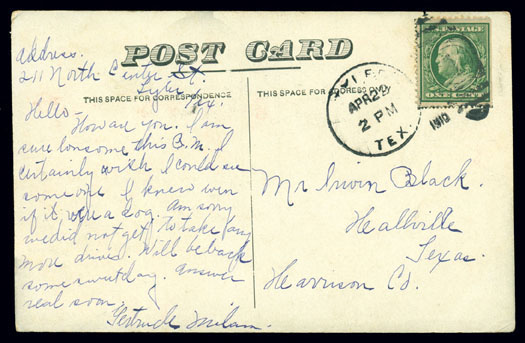 Address.
211 North Center St.
Tyler Tex.
POST CARD
THIS SPACE FOR CORRESPONDENCE
THIS SPACE FOR ADDRESS
TYLER
APR 29
2 PM
TEX.
1910
Hello-
How are you. I am
sure lonsome this P.M. I
certainly wish I could see
some one I knew even
if it was a dog. Am sorry
we did not get to take any
more drives. Will be back
some sweet day. Answer
real soon.
Gertrude Milam.
Mr Irwin Black.
Hallville
Texas.
Harrison Co.